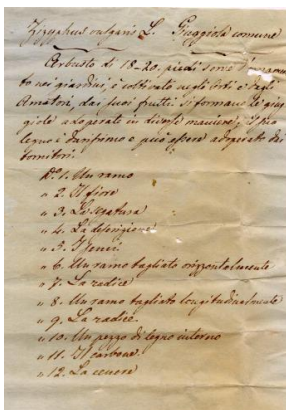 Zizyphus vulgaris L. Giuggiola comune
Arbusto di 18-20. piedi serve d'ornamen
to nei giardini, è coltivato negli orti e dagli
Amatori, dai suoi frutti si formano le giug
giole adoperate in diverse maniere, il suo
legno è durissimo e può essere adoperato dai
tornitori.
No. 1. Un ramo
" 2. Il fiore
" 3. La
" 4. La descrizione
" 5. I semi
" 6. Un ramo tagliato orizzontalmente
" 7. La radice
" 8. Un ramo tagliato longitudinalmente
" 9. La radice
" 10. Un pezzo di legno interno
" 11. Il carbone
" 12. La cenere